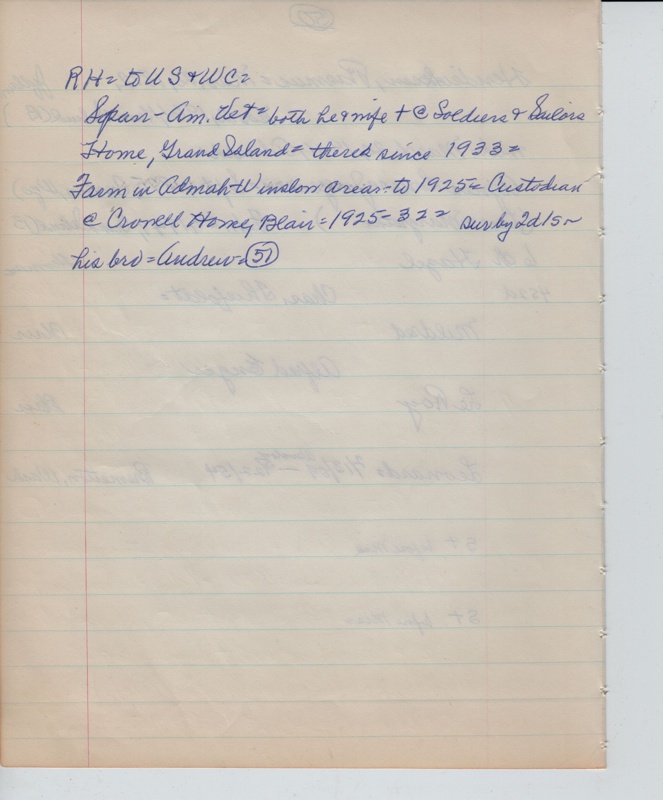 RH = to US & WC =
Span-Am. Vet = both he & wife + @ Soldiers & Sailors
Home, Grand Island = there since 1933 =
Farm in Admah-Winslow area - to 1925 = Custodian
@ Crowell Home, Blair = 1925-32 = sur by 2d 1s ~
his bro = Andrew = 51